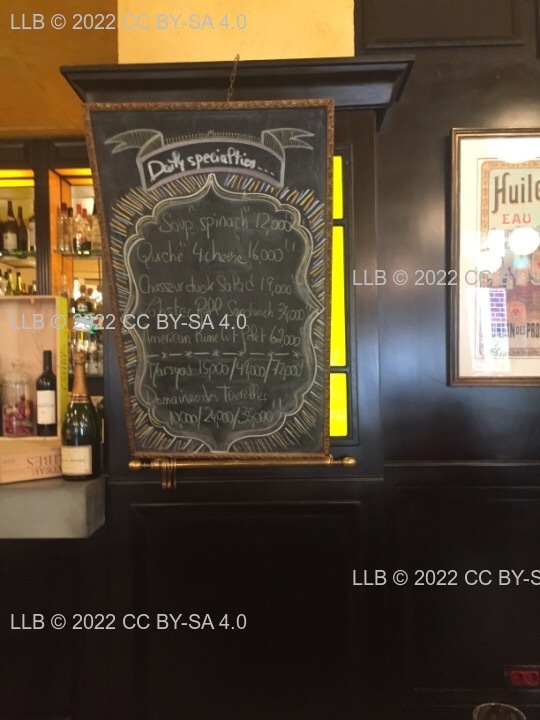 LLB © 2022 CC BY-SA 4.0
Daily specialties...
"Soup spinach" 12,000
Quiche "4 cheese" 16,000
Chasseur duck Salad 19,000
Sandwich 34,000
American Filet 62,000
Marsyas 15,000/41,000/72,000
Domaine des Tourelles
10,000/24,000/35,000
Huile
EAU
LLB © 2022 CC BY-S
LLB © 2022 CC BY-SA 4.0
LLB © 2022 CC BY-S
LLB © 2022 CC BY-SA 4.0